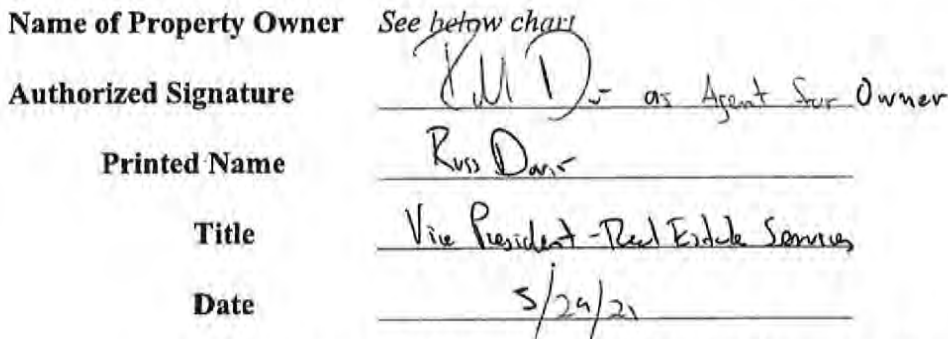 Name of Property Owner See below chart
Authorized Signature as Agent for Owner
Printed Name Russ Davis
Title Vice President - Real Estate Services
Date 5/29/21